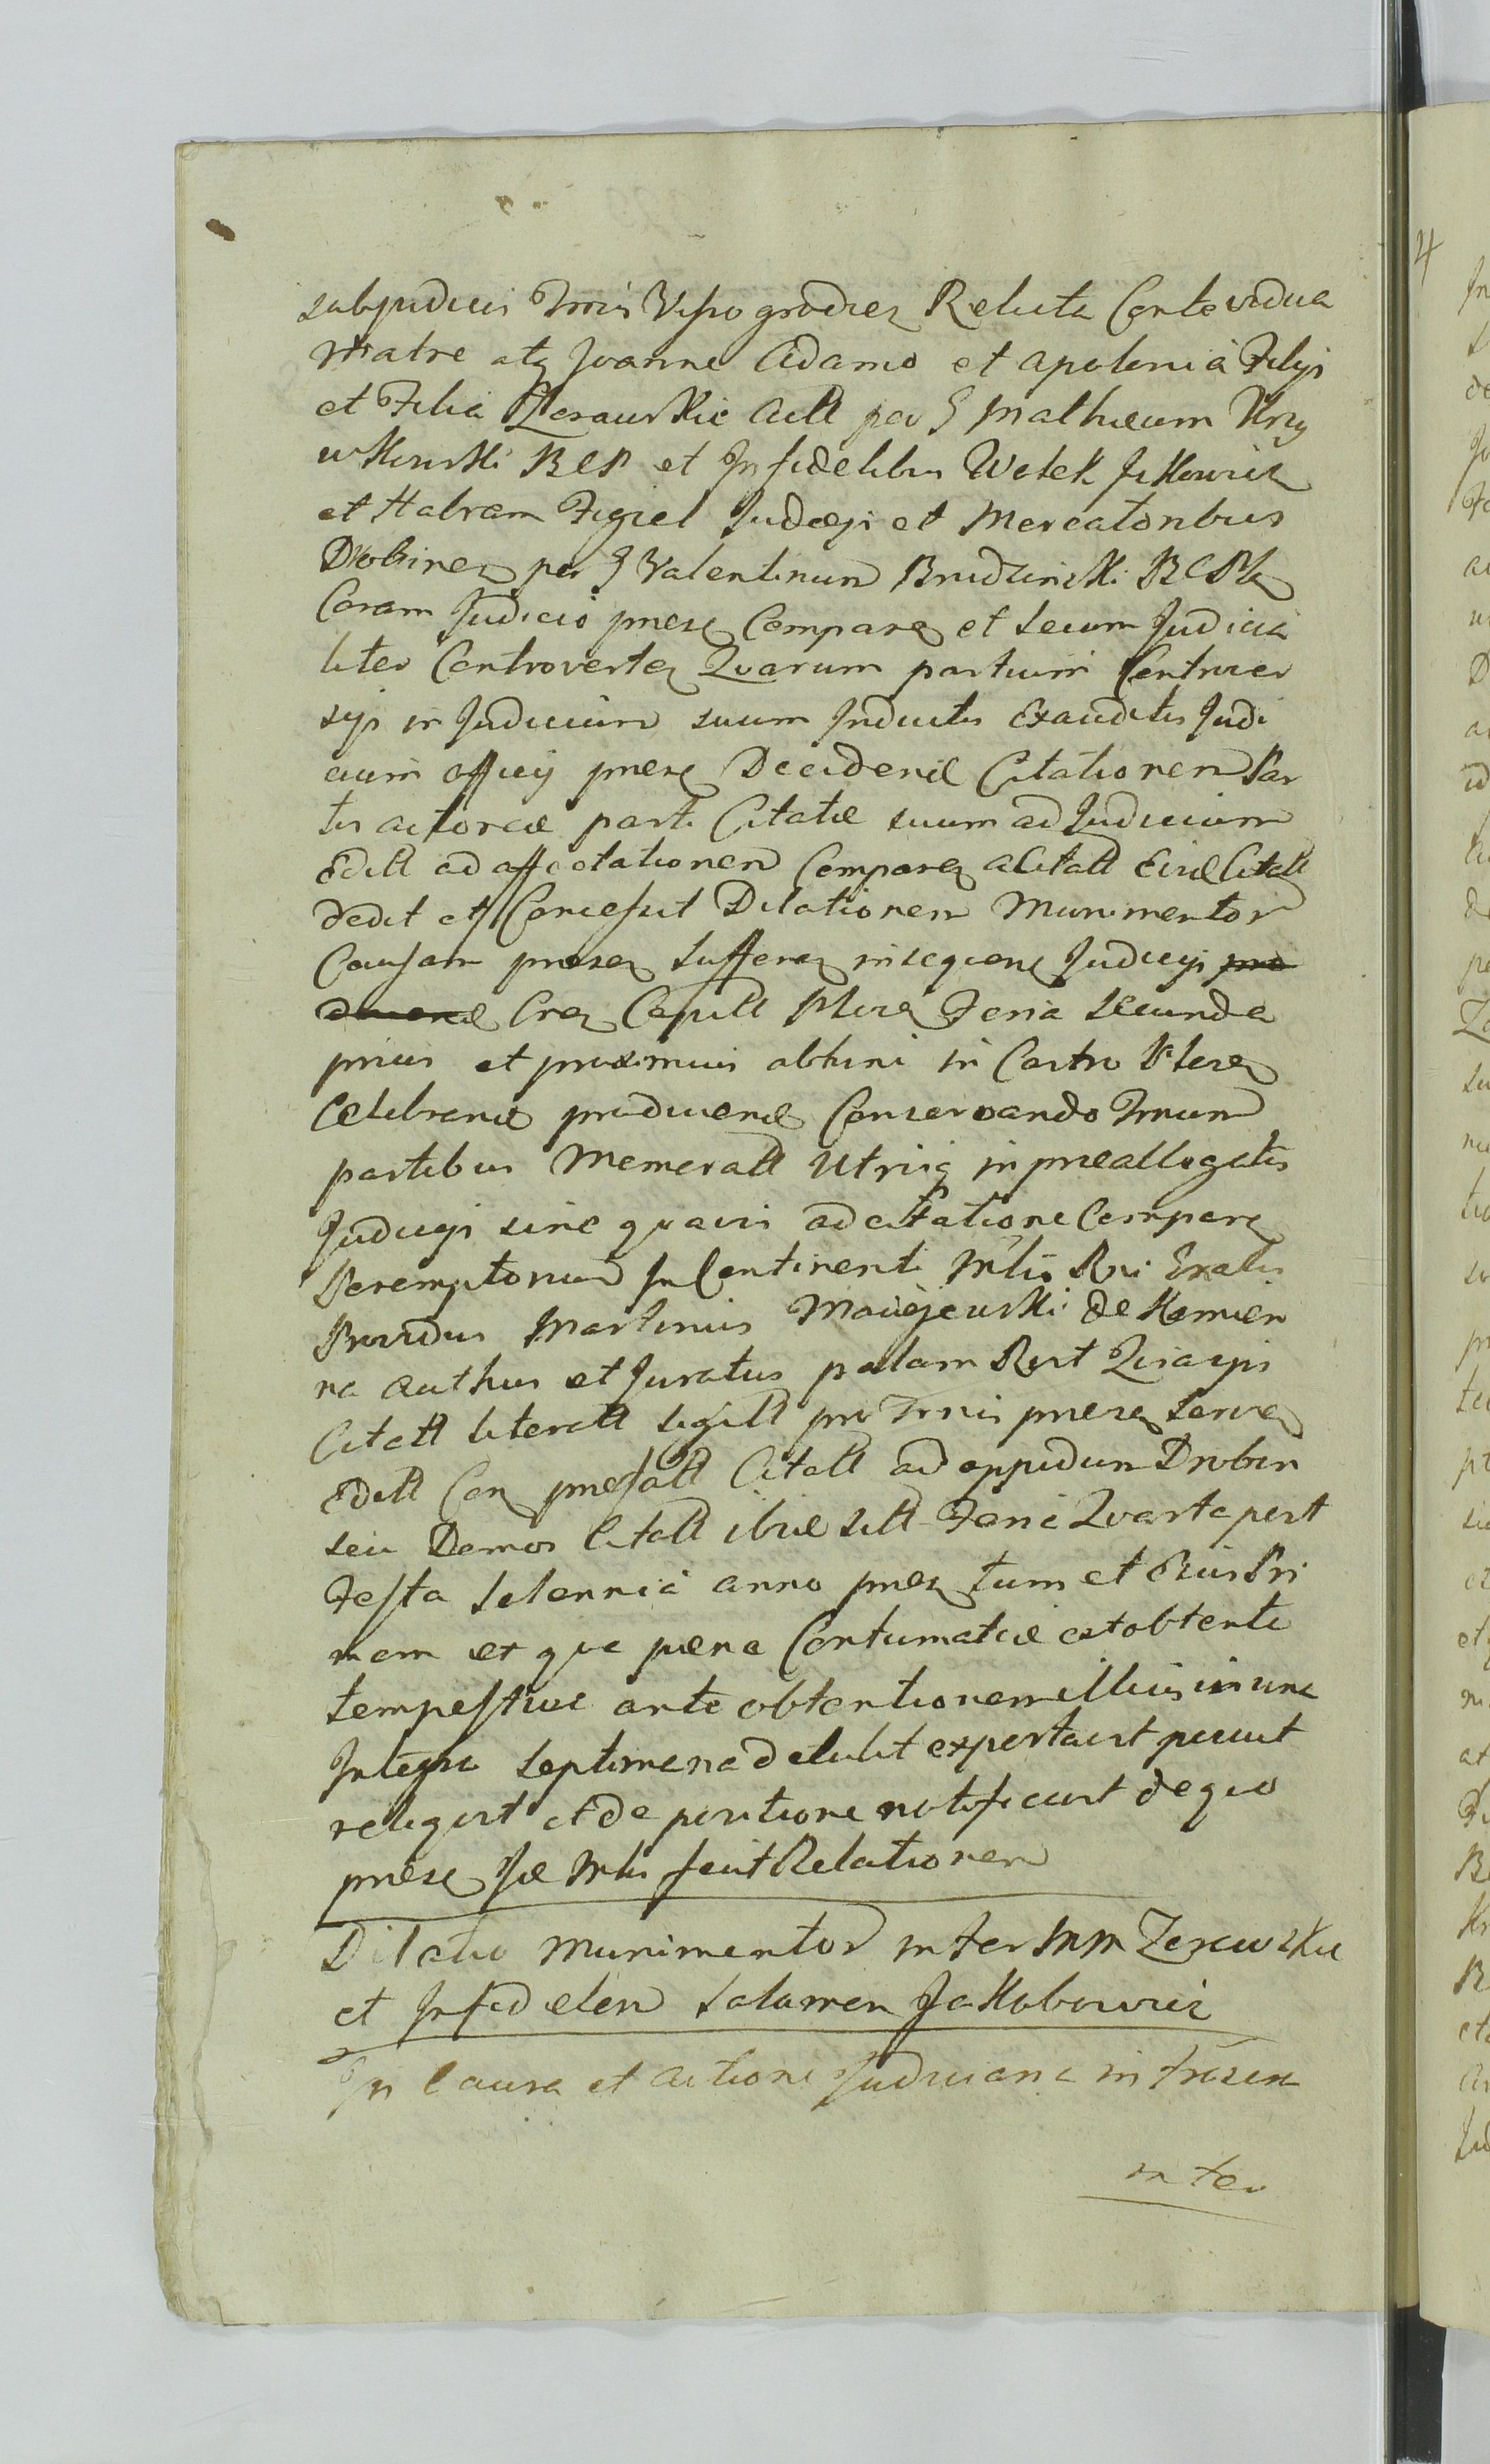 subjudicii Vyszogrodien Relicta Vidua
Matre atq Joanne Adamo et Apolonia Filijs
et Filia Zerawskie Actt per G Mathæum Kry
wkowski BCP et Infidelibus Wolek
et Habram Figiel Judæis et Mercatoribus
Drobinen per G Valentinum Brudzinski BCPl
Coram Judicio præsen Comparen et secum Judicia
liter Controverten Quarum partium Controver
sijs in Judicium suum Inductis Exauditis Judi
cium officij præsen Decidend Citationem Par
tis actoreæ parti Citatæ suum ad Judicium
Editt ad affectationem Comparen a Citatt Eisd Citatt
dedit et Concessit Dilationem Munimentor
Causam præsen Sufferen in sequen Judicijs pro
ducend Cren Capitt Plocen Feria Secunda
prius et proximius obtini in Castro Plocen
Celebrand producend Conservando Tmum
partibus Memoratt Utrisq in præallegatis
Judicijs sine quavis adcitatione Comparen
Peremptorium In Continenti Mtlis Rni Gnalis
Providus Martinus Maciejewski de Kamien
na authus et Juratus palam Rect Quia ijs
Citatt literatt sigilt pro Tmis præsen serven
Editt Con præfatt Citatt ad oppidum Drobin
seu Domos Citatt ibid sitt Feria Quarta post
Festa Solennia anno præsen tum et
mam et qua pæna Contumatiæ est obtenta
tempestive ante obtentionem illius in una
Integra Septimana detulit exportavit posuit
reliquit et de positione notificavit de quo
præsen suæ Mtlis fecit Relationem
Dilatio Munimentor inter MM Zerawskie
et Infidelem Salamon Jakobowicz
In Causa et actione Judiciana infrascr
inter